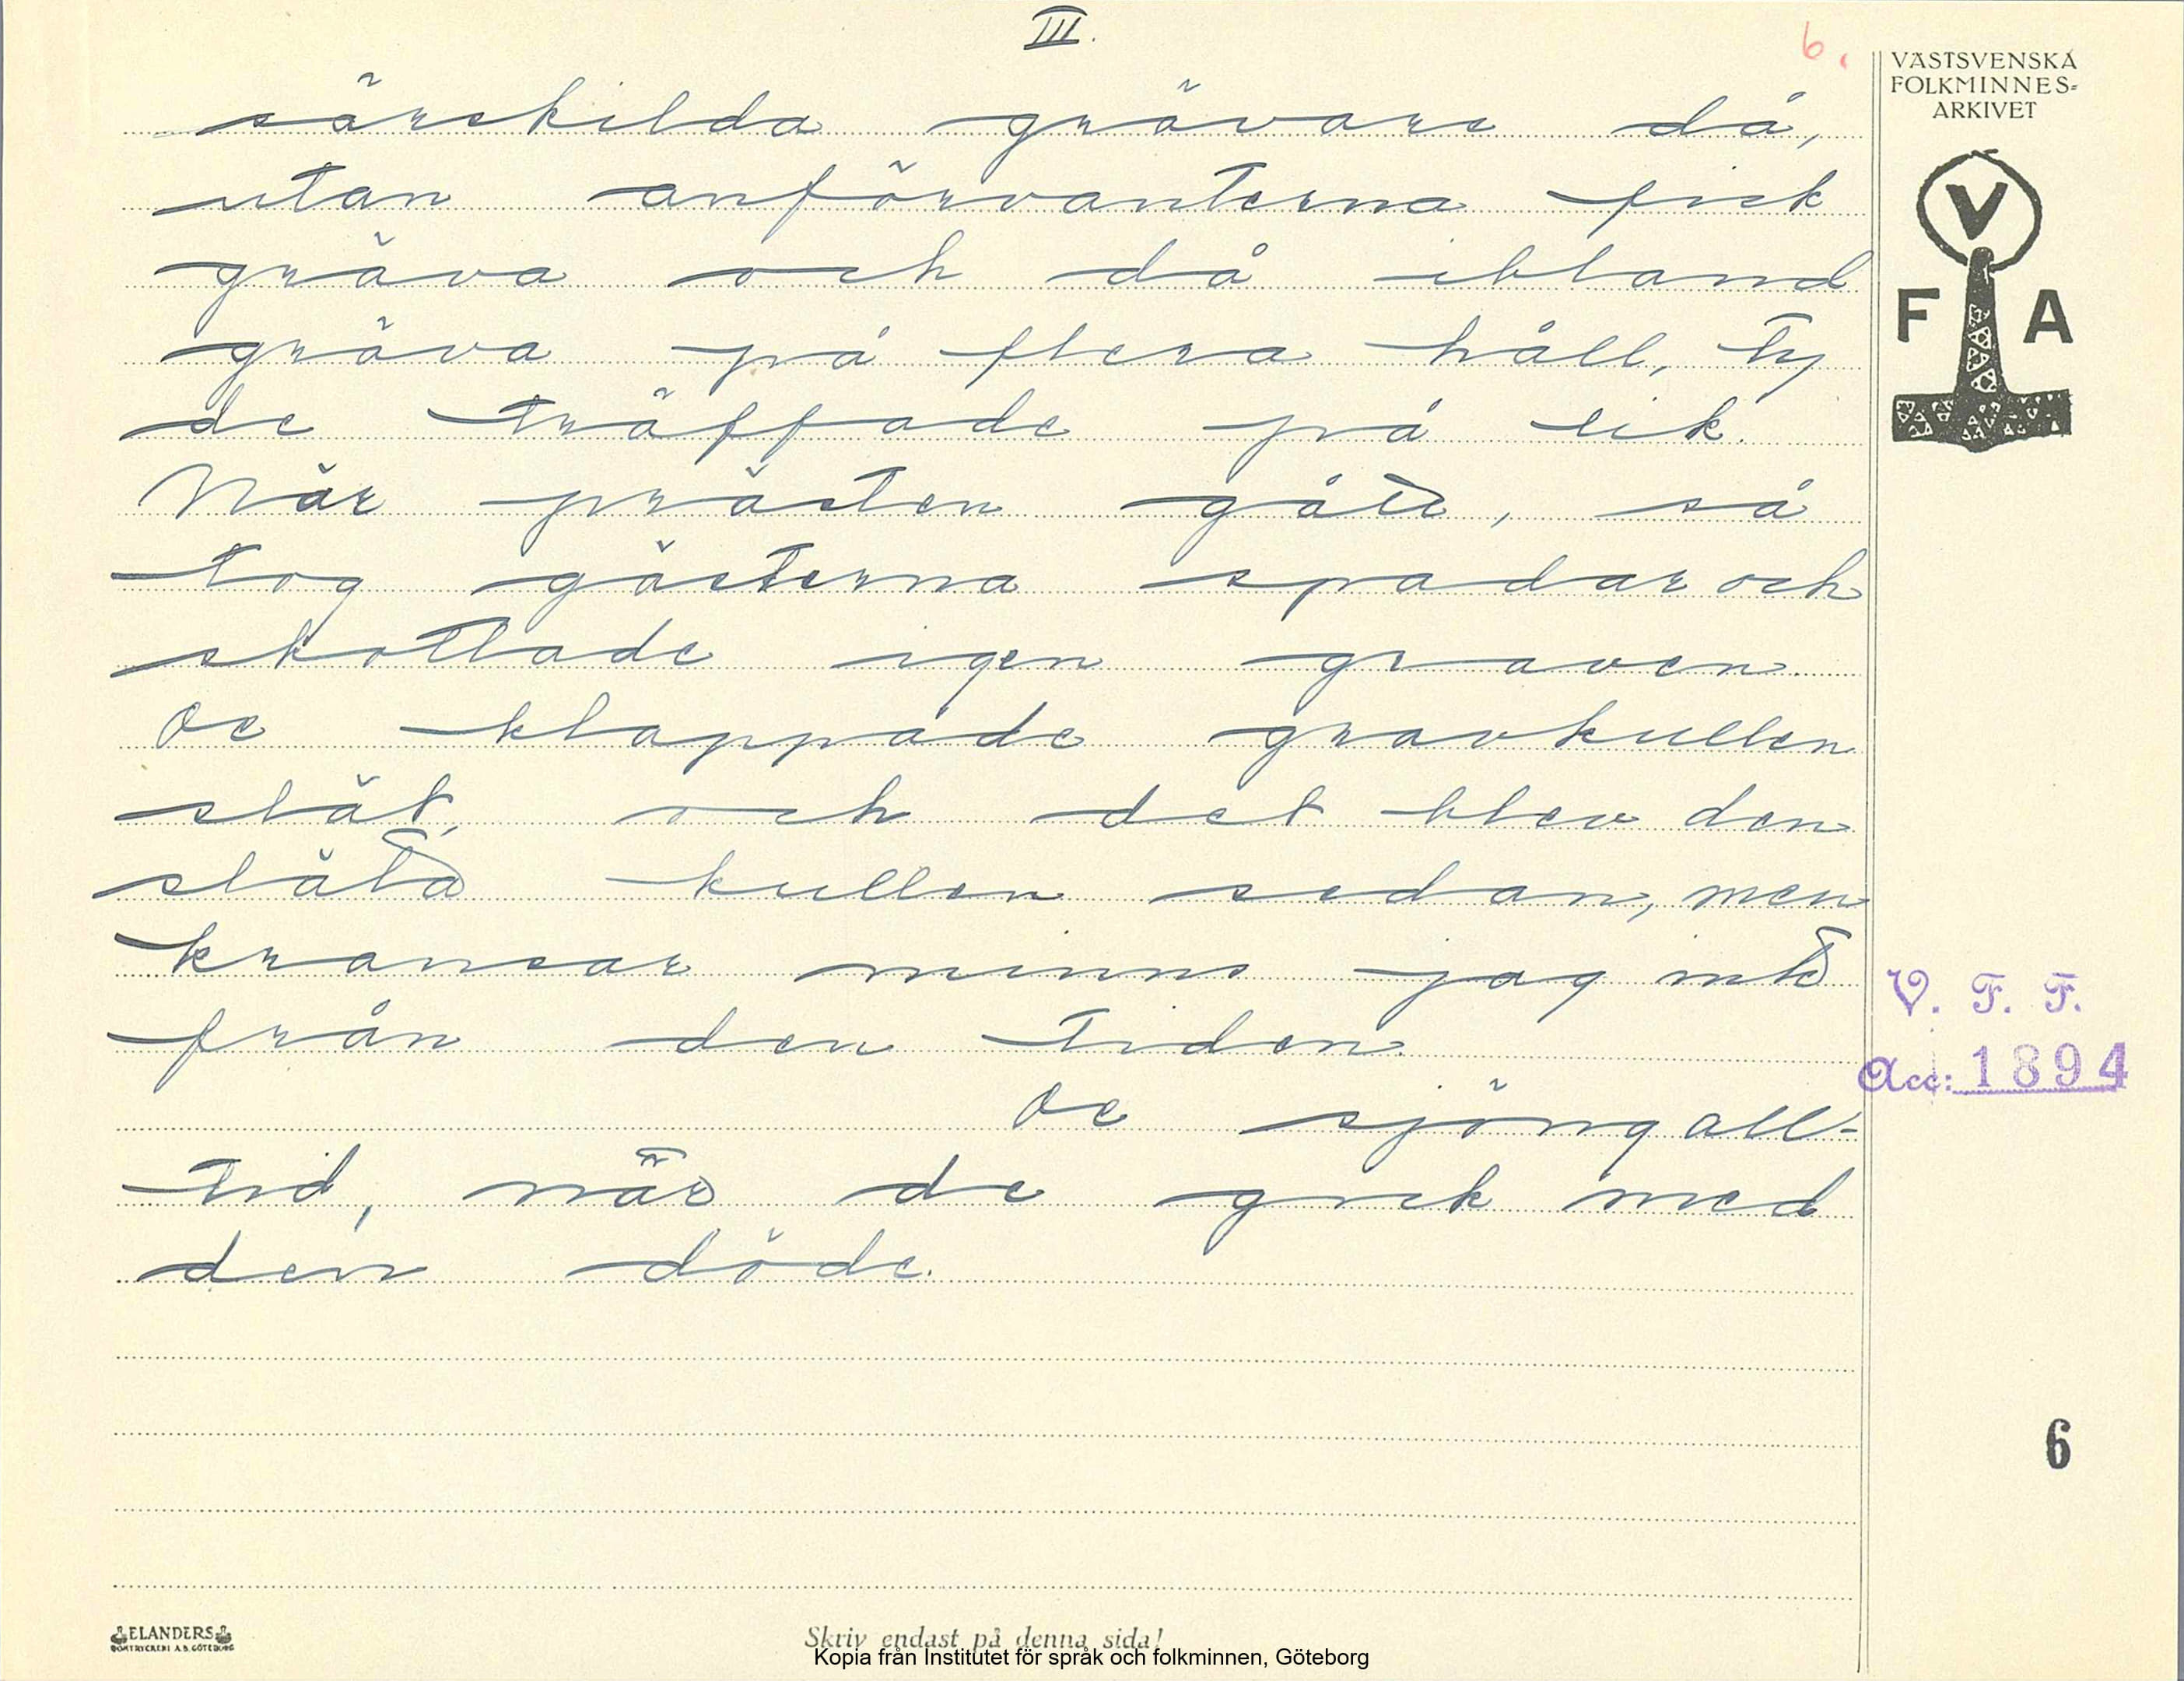 III.
6.
VÄSTSVENSKA
FOLKMINNES-
ARKIVET
särskilda grävare då,
utan anförvanterna fick
gräva och då ibland
gräva på flera håll, ty
de träffade på lik.
När prästen gått, så
tog gästerna spadar och
skottade igen graven.
De klappade gravkullen
slät, och det blev den
släta kullen sedan, men
kransar minns jag inte
från den tiden.
De sjöng all-
tid, när de gick med
den döde.
V
F A
V. F. F.
Acc: 1894
6
ELANDERS
BOKTRYCKERI A.B. GÖTEBORG
Skriv endast på denna sida!
Kopia från Institutet för språk och folkminnen, Göteborg